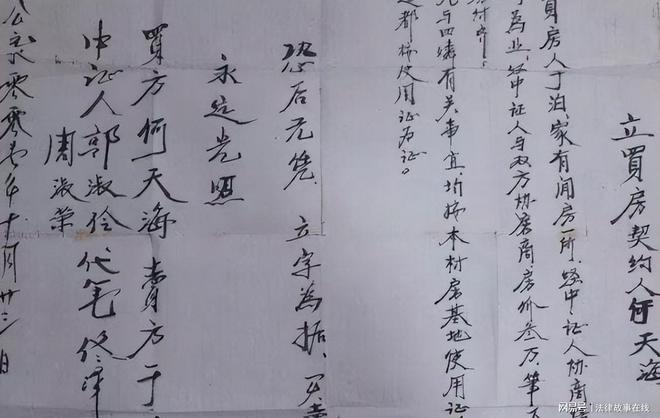 立買房契约人何天海
買房人于泊、家有闲房一所、经中、证人协商
为业、经中证人与双方协房商房价叁万、笔
与四邻有关事宜、均按本村房基地使用证
都按使用证为证。
恐后无凭、立字为据、买
永远光照
買方何天海 賣方于
中证人郭淑伶代笔佟泽
周淑荣
公元零零壹年十月廿三日
网易号 | 法律故事在线